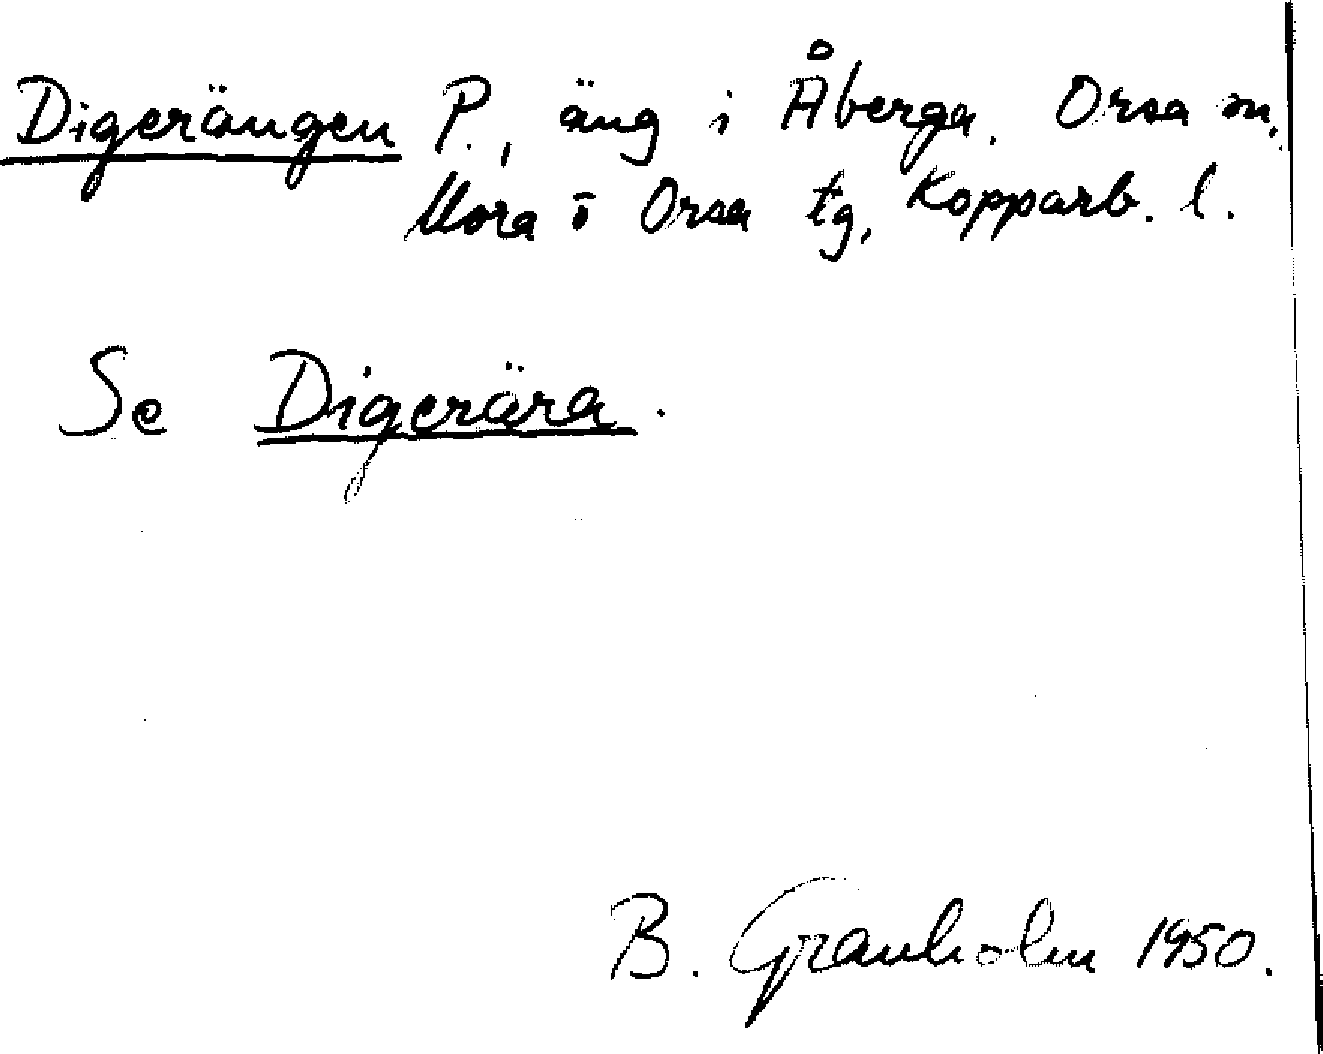 Digerängen P., äng i Åberga, Orsa sn,
Mora o Orsa tg, Kopparb. l.
Se Digerära.
B. Granholm 1950.